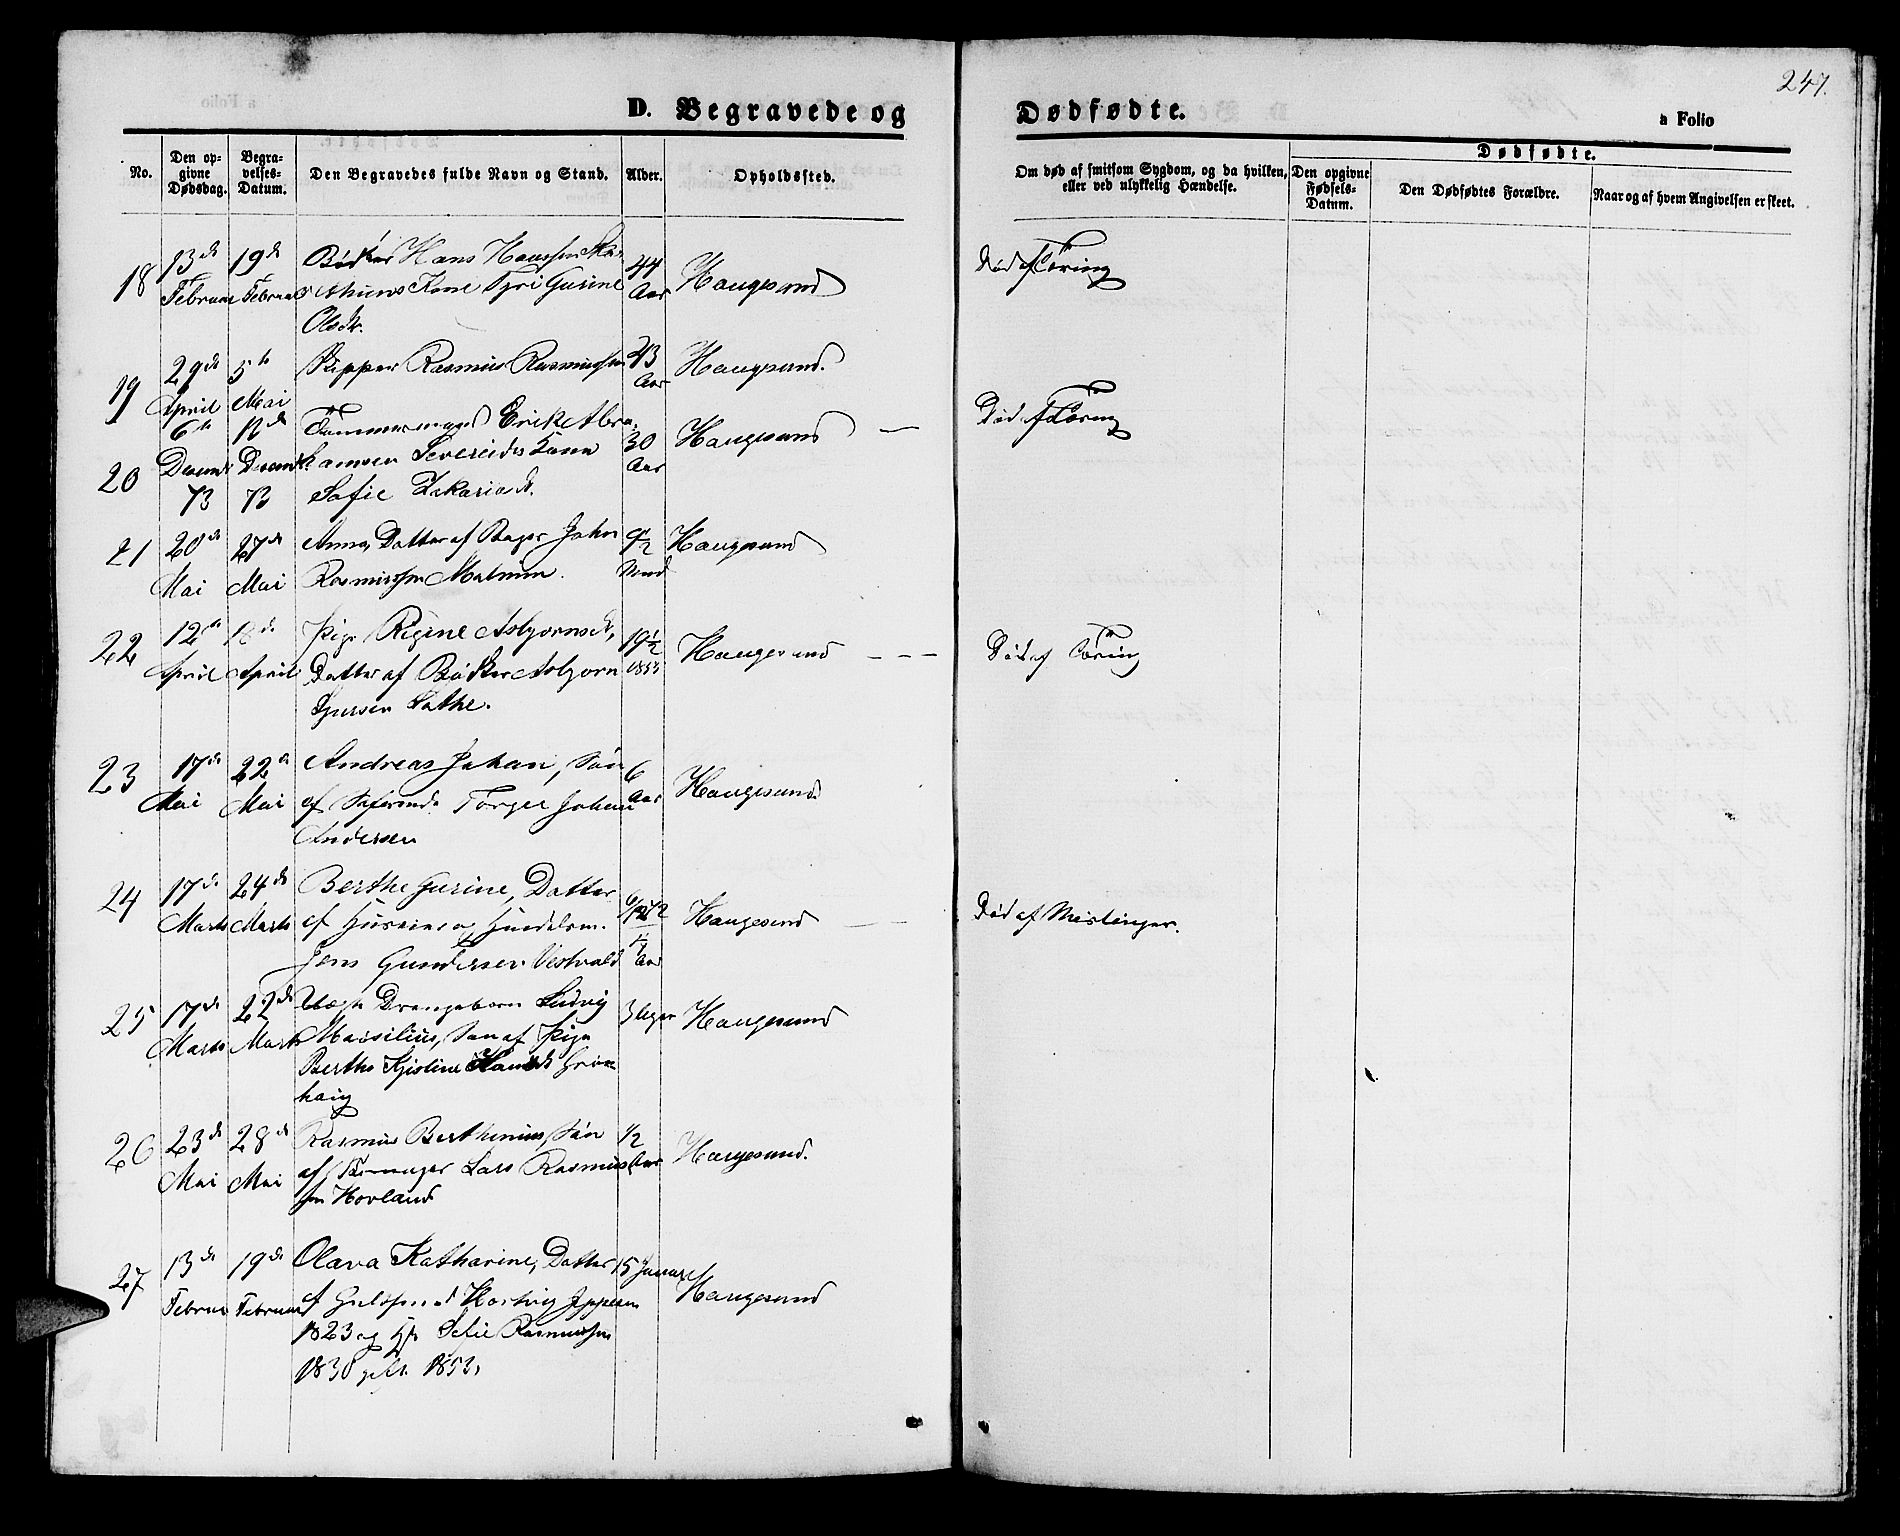 247.
D. Begravede og Dødfødte.
a Folio
No.
Den opgivne Dødsdag.
Begravelses-Datum.
Den Begravedes fulde Navn og Stand.
Alder.
Opholdssted.
Om død af smitsom Sygdom, og da hvilken, eller ved ulykkelig Hændelse.
Dødfødte.
Den opgivne Fødsels-Datum.
Den Dødfødtes Forældre.
Naar og af hvem Angivelsen er skeet.
18 13de 19de Bødker Hans 44 Haugesund Død af Tæring
Februar Februar Kone Gurine Aar
Olsdtr.
19 29de 5te Skipper Rasmus Rasmussen 43 Haugesund.
April Mai Aar
6te 12de Tømmermand Erik Abra- 30 Haugesund Død af Tæring
20 Decembr Decembr hamsen Severeides Kone Aar
73 73 Sofie Zakariasd.
21 20de 27de Anna, Datter af Bager John 9/2 Haugesund
Mai Mai Rasmussen Mnd
22 12te 18de Pige Regine Asbjørnsdt, 19½ Haugesund Død af Tæring
April April Datter af Bødker Asbjørn 1853
Sjursen Sathe.
23 17de 22de Andreas Johan, Søn 6 Haugesund
Mai Mai af Søfarende Torger Johan Aar
Andersen
24 17de 24de Berthe Gurine, Datter Haugesund Død af Meslinger.
Marts Marts af Huseier og Handelsm.
Jens Gundersen Aar
25 17de 22de Uægte Drengebarn Ludvig 3 Uger Haugesund
Marts Marts Søn af Pige
Berthe Kjistine
haug
26 23de 28de Rasmus Berthinius, Søn 1/2 Haugesund.
Mai Mai af Lars Rasmus- Aar
sen Hovland
27 13de 19de Olava Katharine, Datter 15 Januar Haugesund
Februar Februar af Guldsmed Jeppesen
1823 og Sofie Rasmussen
1830 gift 1853.